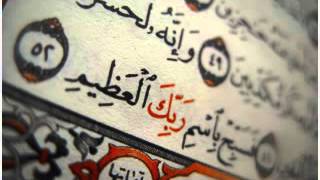 كَذِّبِينَ ٤٩ وَإِنَّهُ لَحَسْر
٥١ فَسَبِّحْ بِٱسْمِ رَبِّكَ ٱلْعَظِيمِ ٥٢